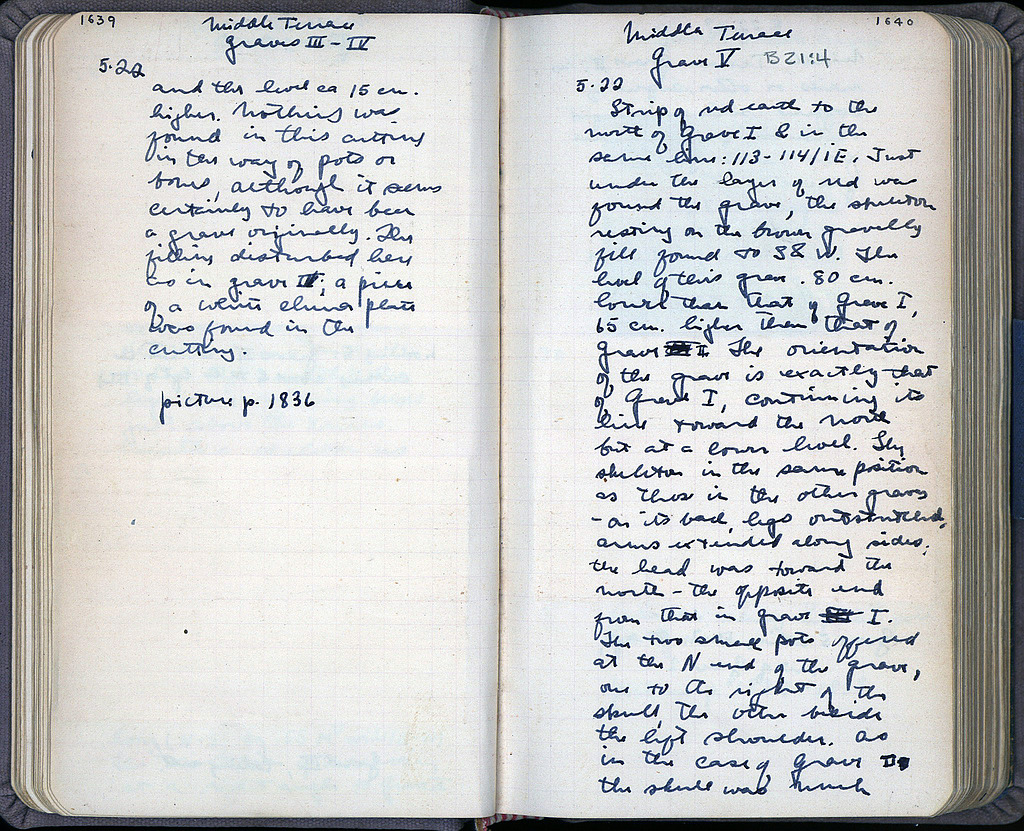 1639
Middle Terrace
Graves III - IV
5.22
and the level ca 15 cm.
higher. Nothing was
found in this cutting
in the way of pots or
bones, although it seems
certainly to have been
a grave originally. The
filling disturbed here
as in grave III; a piece
of a white china plate
was found in the
cutting.
picture p. 1836
1640
Middle Terrace
Grave V B 21:4
5.22
Strip of red earth to the
north of Grave I & in the
same line: 113-114/1E. Just
under the layer of red was
found the grave, the skeleton
resting on the brown gravelly
fill found to S & W. The
level of this grave . 80 cm.
lower than that of Grave I,
65 cm. higher than that of
Grave II. The orientation
of the grave is exactly that
of Grave I, continuing its
line toward the north
but at a lower level. The
skeleton in the same position
as those in the other graves
- on its back, legs outstretched,
arms extended along sides;
the head was toward the
north - the opposite end
from that in grave I.
The two small pots offered
at the N end of the grave,
one to the right of the
skull, the other beside
the left shoulder. As
in the case of grave
the skull was much